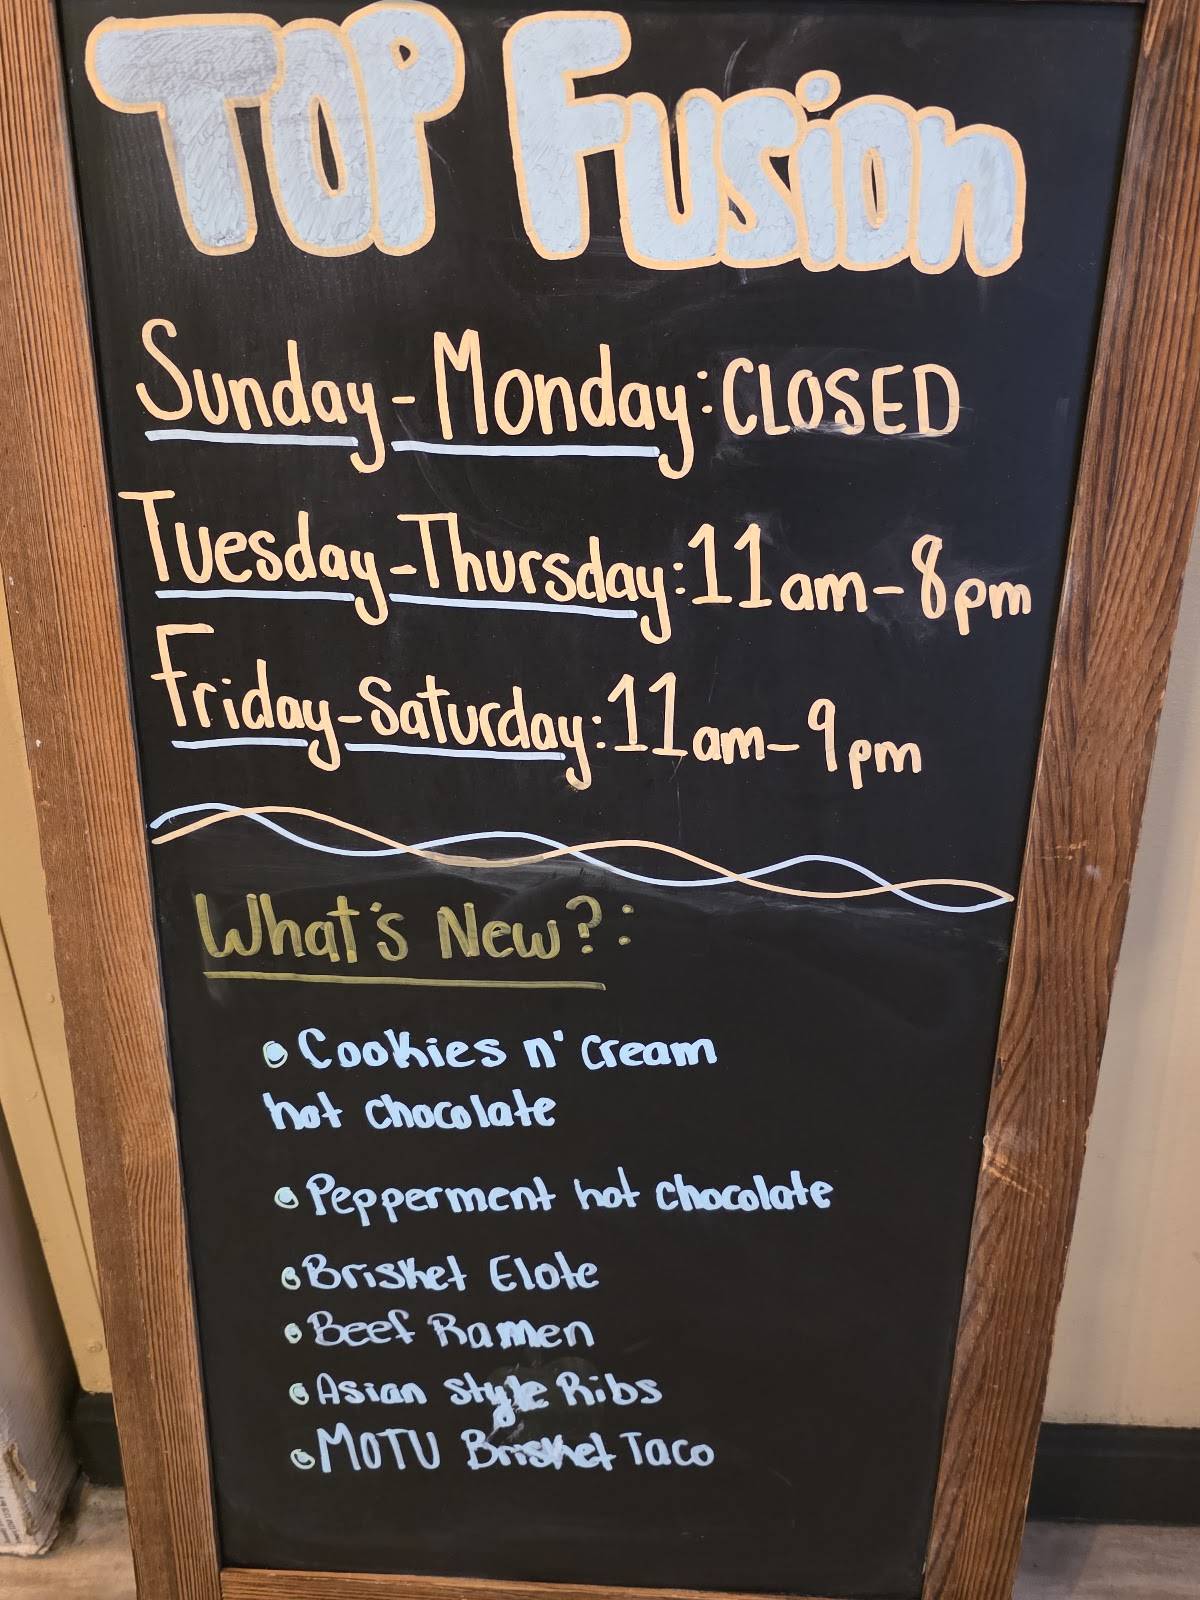 TOP Fusion
Sunday-Monday: CLOSED
Tuesday-Thursday: 11am-8pm
Friday-Saturday: 11am-9pm
What's New?:
• Cookies n' cream
hot chocolate
• Pepperment hot chocolate
• Brisket Elote
• Beef Ramen
• Asian Style Ribs
• MOTU Brisket Taco